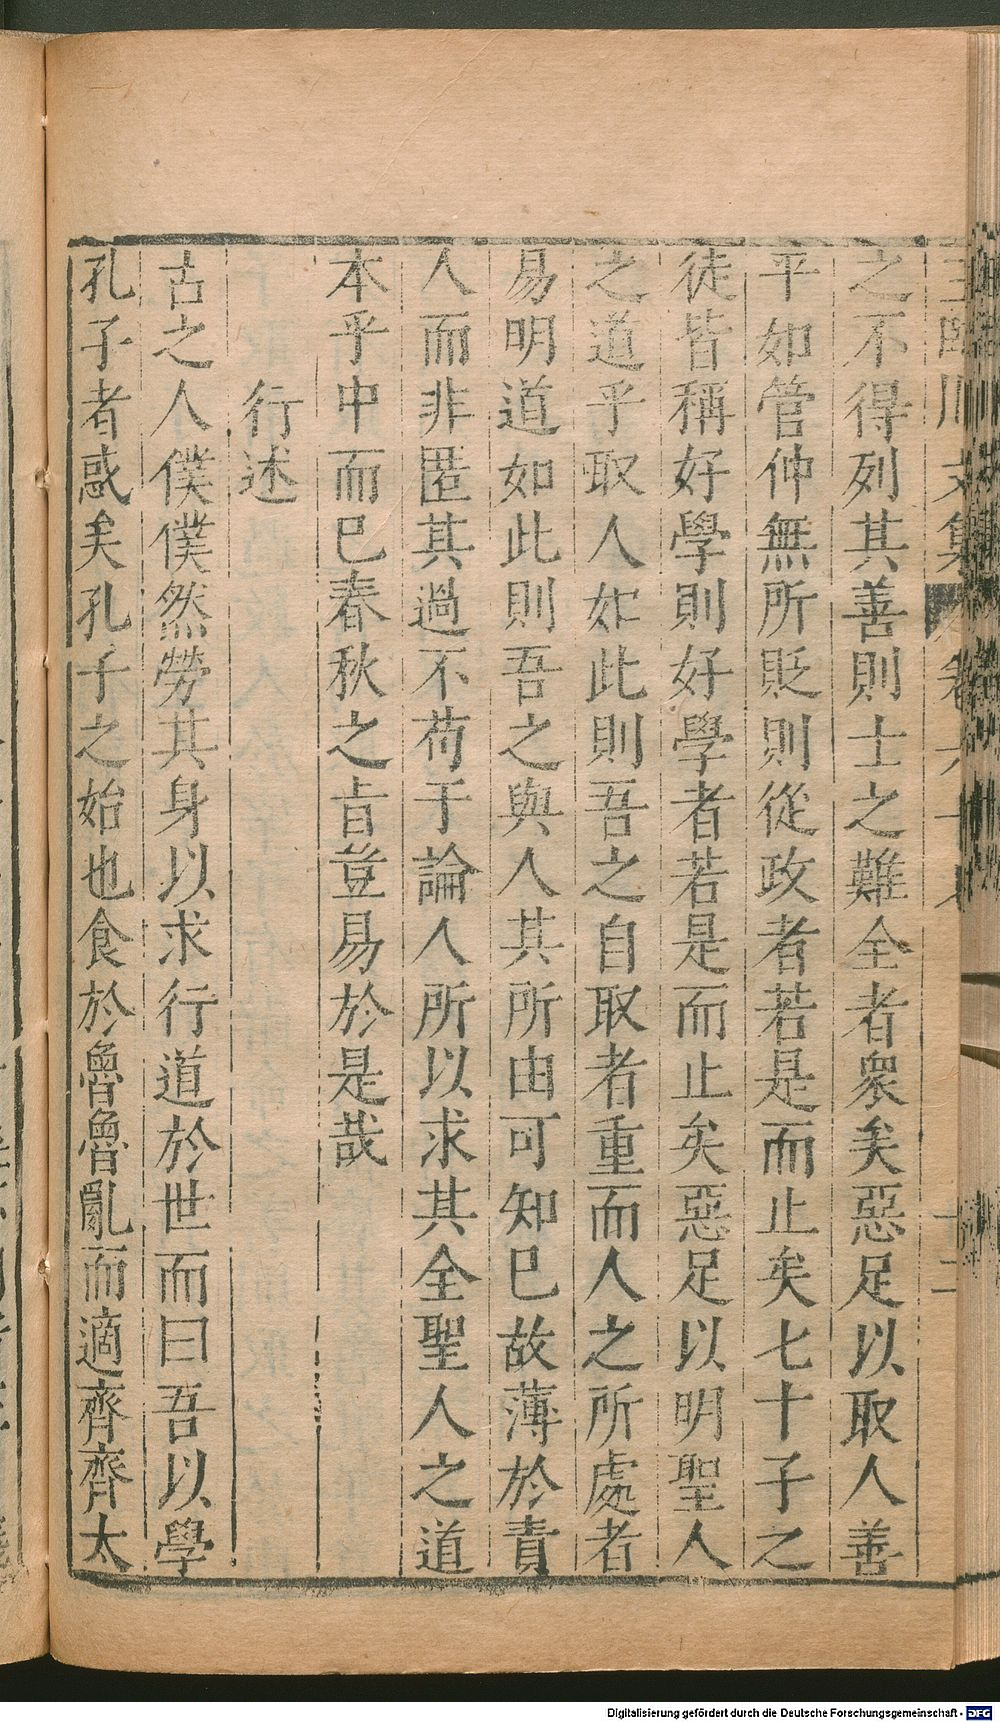 之不得列其善則士之難全者衆矣惡足以取人善
平如管仲無所貶則從政者若是而止矣七十子之
徒皆稱好學則好學者若是而止矣惡足以明聖人
之道乎取人如此則吾之自取者重而人之所處者
易明道如此則吾之與人其所由可知已故薄於責
人而非匿其過不苟于論人所以求其全聖人之道
本乎中而已春秋之旨豈易於是哉
行述
古之人僕僕然勞其身以求行道於世而曰吾以學
孔子者惑矣孔子之始也食於魯魯亂而適齊齊太
Digitalisierung gefördert durch die Deutsche Forschungsgemeinschaft - DFG